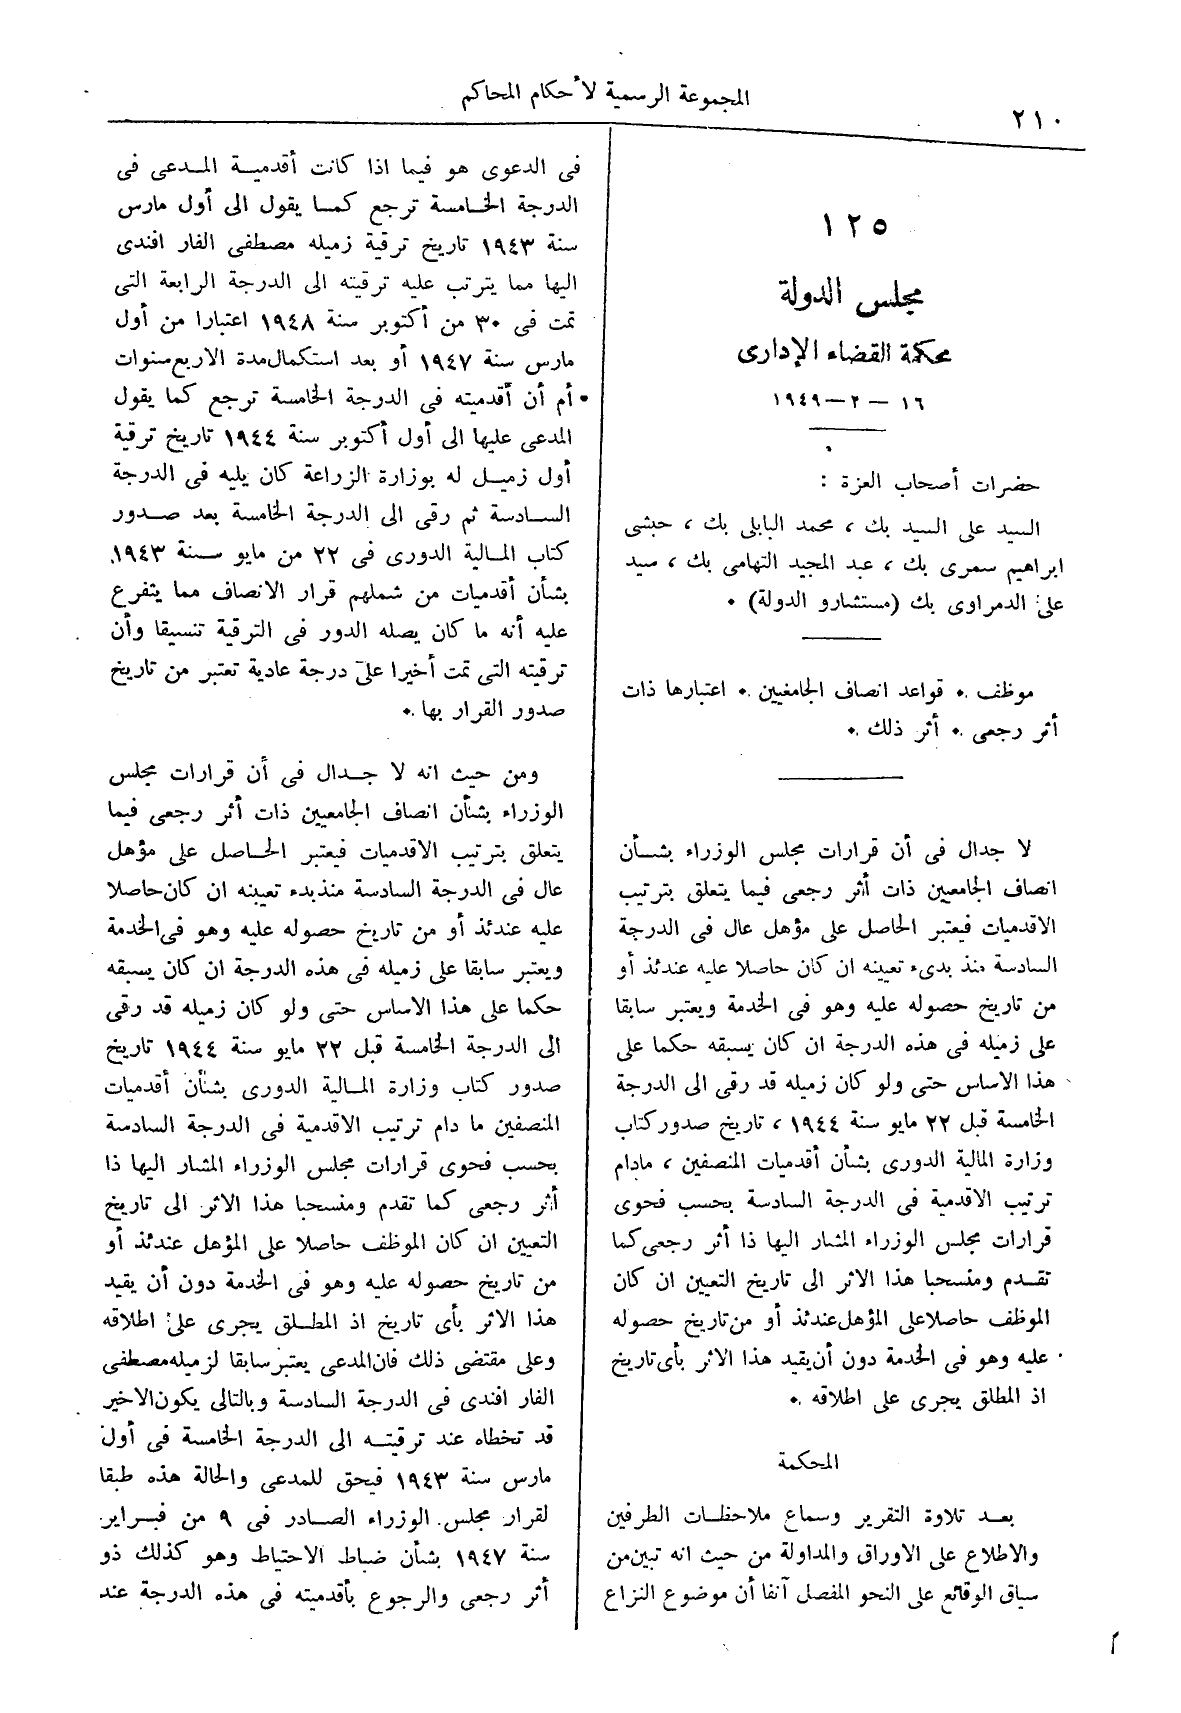 المجموعة الرسمية لأحكام المحاكم
٢١٠
١٢٥
مجلس الدولة
محكمة القضاء الإدارى
١٦ — ٢ — ١٩٤٩
حضرات أصحاب العزة :
السيد على السيد بك ، محمد البابلى بك ، حبشى
ابراهيم سمرى بك ، عبد المجيد التهامى بك ، سيد
على الدمراوى بك (مستشارو الدولة) .
موظف . قواعد انصاف الجامعيين . اعتبارها ذات
أثر رجعى . أثر ذلك .
لا جدال فى أن قرارات مجلس الوزراء بشأن
انصاف الجامعيين ذات أثر رجعى فيما يتعلق بترتيب
الاقدميات فيعتبر الحاصل على مؤهل عال فى الدرجة
السادسة منذ بدىء تعيينه ان كان حاصلا عليه عندئذ أو
من تاريخ حصوله عليه وهو فى الخدمة ويعتبر سابقا
على زميله فى هذه الدرجة ان كان يسبقه حكما على
هذا الاساس حتى ولو كان زميله قد رقى الى الدرجة
الخامسة قبل ٢٢ مايو سنة ١٩٤٤ ، تاريخ صدور كتاب
وزارة المالية الدورى بشأن أقدميات المنصفين ، مادام
ترتيب الاقدمية فى الدرجة السادسة بحسب فحوى
قرارات مجلس الوزراء المشار اليها ذا أثر رجعى كما
تقدم ومنسحبا هذا الاثر الى تاريخ التعيين ان كان
الموظف حاصلا على المؤهل عندئذ أو من تاريخ حصوله
عليه وهو فى الخدمة دون أن يقيد هذا الاثر بأى تاريخ
اذ المطلق يجرى على اطلاقه .
المحكمة
بعد تلاوة التقرير وسماع ملاحظات الطرفين
والاطلاع على الاوراق والمداولة من حيث انه تبين من
سياق الوقائع على النحو المفصل آنفا أن موضوع النزاع
فى الدعوى هو فيما اذا كانت أقدمية المدعى فى
الدرجة الخامسة ترجع كما يقول الى أول مارس
سنة ١٩٤٣ تاريخ ترقية زميله مصطفى الفار افندى
اليها مما يترتب عليه ترقيته الى الدرجة الرابعة التى
تمت فى ٣٠ من أكتوبر سنة ١٩٤٨ اعتبارا من أول
مارس سنة ١٩٤٧ أو بعد استكمال مدة الاربع سنوات
أم أن أقدميته فى الدرجة الخامسة ترجع كما يقول
المدعى عليها الى أول أكتوبر سنة ١٩٤٤ تاريخ ترقية
أول زميل له بوزارة الزراعة كان يليه فى الدرجة
السادسة ثم رقى الى الدرجة الخامسة بعد صدور
كتاب المالية الدورى فى ٢٢ من مايو سنة ١٩٤٣
بشأن أقدميات من شملهم قرار الانصاف مما يتفرع
عليه أنه ما كان يصله الدور فى الترقية تنسيقا وأن
ترقيته التى تمت أخيرا على درجة عادية تعتبر من تاريخ
صدور القرار بها .
ومن حيث انه لا جدال فى أن قرارات مجلس
الوزراء بشأن انصاف الجامعيين ذات أثر رجعى فيما
يتعلق بترتيب الاقدميات فيعتبر الحاصل على مؤهل
عال فى الدرجة السادسة منذ بدء تعيينه ان كان حاصلا
عليه عندئذ أو من تاريخ حصوله عليه وهو فى الخدمة
ويعتبر سابقا على زميله فى هذه الدرجة ان كان يسبقه
حكما على هذا الاساس حتى ولو كان زميله قد رقى
الى الدرجة الخامسة قبل ٢٢ مايو سنة ١٩٤٤ تاريخ
صدور كتاب وزارة المالية الدورى بشأن أقدميات
المنصفين ما دام ترتيب الاقدمية فى الدرجة السادسة
بحسب فحوى قرارات مجلس الوزراء المشار اليها ذا
أثر رجعى كما تقدم ومنسحبا هذا الاثر الى تاريخ
التعيين ان كان الموظف حاصلا على المؤهل عندئذ أو
من تاريخ حصوله عليه وهو فى الخدمة دون أن يقيد
هذا الاثر بأى تاريخ اذ المطلق يجرى على اطلاقه
وعلى مقتضى ذلك فان المدعى يعتبر سابقا لزميله مصطفى
الفار افندى فى الدرجة السادسة وبالتالى يكون الاخير
قد تخطاه عند ترقيته الى الدرجة الخامسة فى أول
مارس سنة ١٩٤٣ فيحق للمدعى والحالة هذه طبقا
لقرار مجلس الوزراء الصادر فى ٩ من فبراير
سنة ١٩٤٧ بشأن ضباط الاحتياط وهو كذلك ذو
أثر رجعى والرجوع بأقدميته فى هذه الدرجة عند